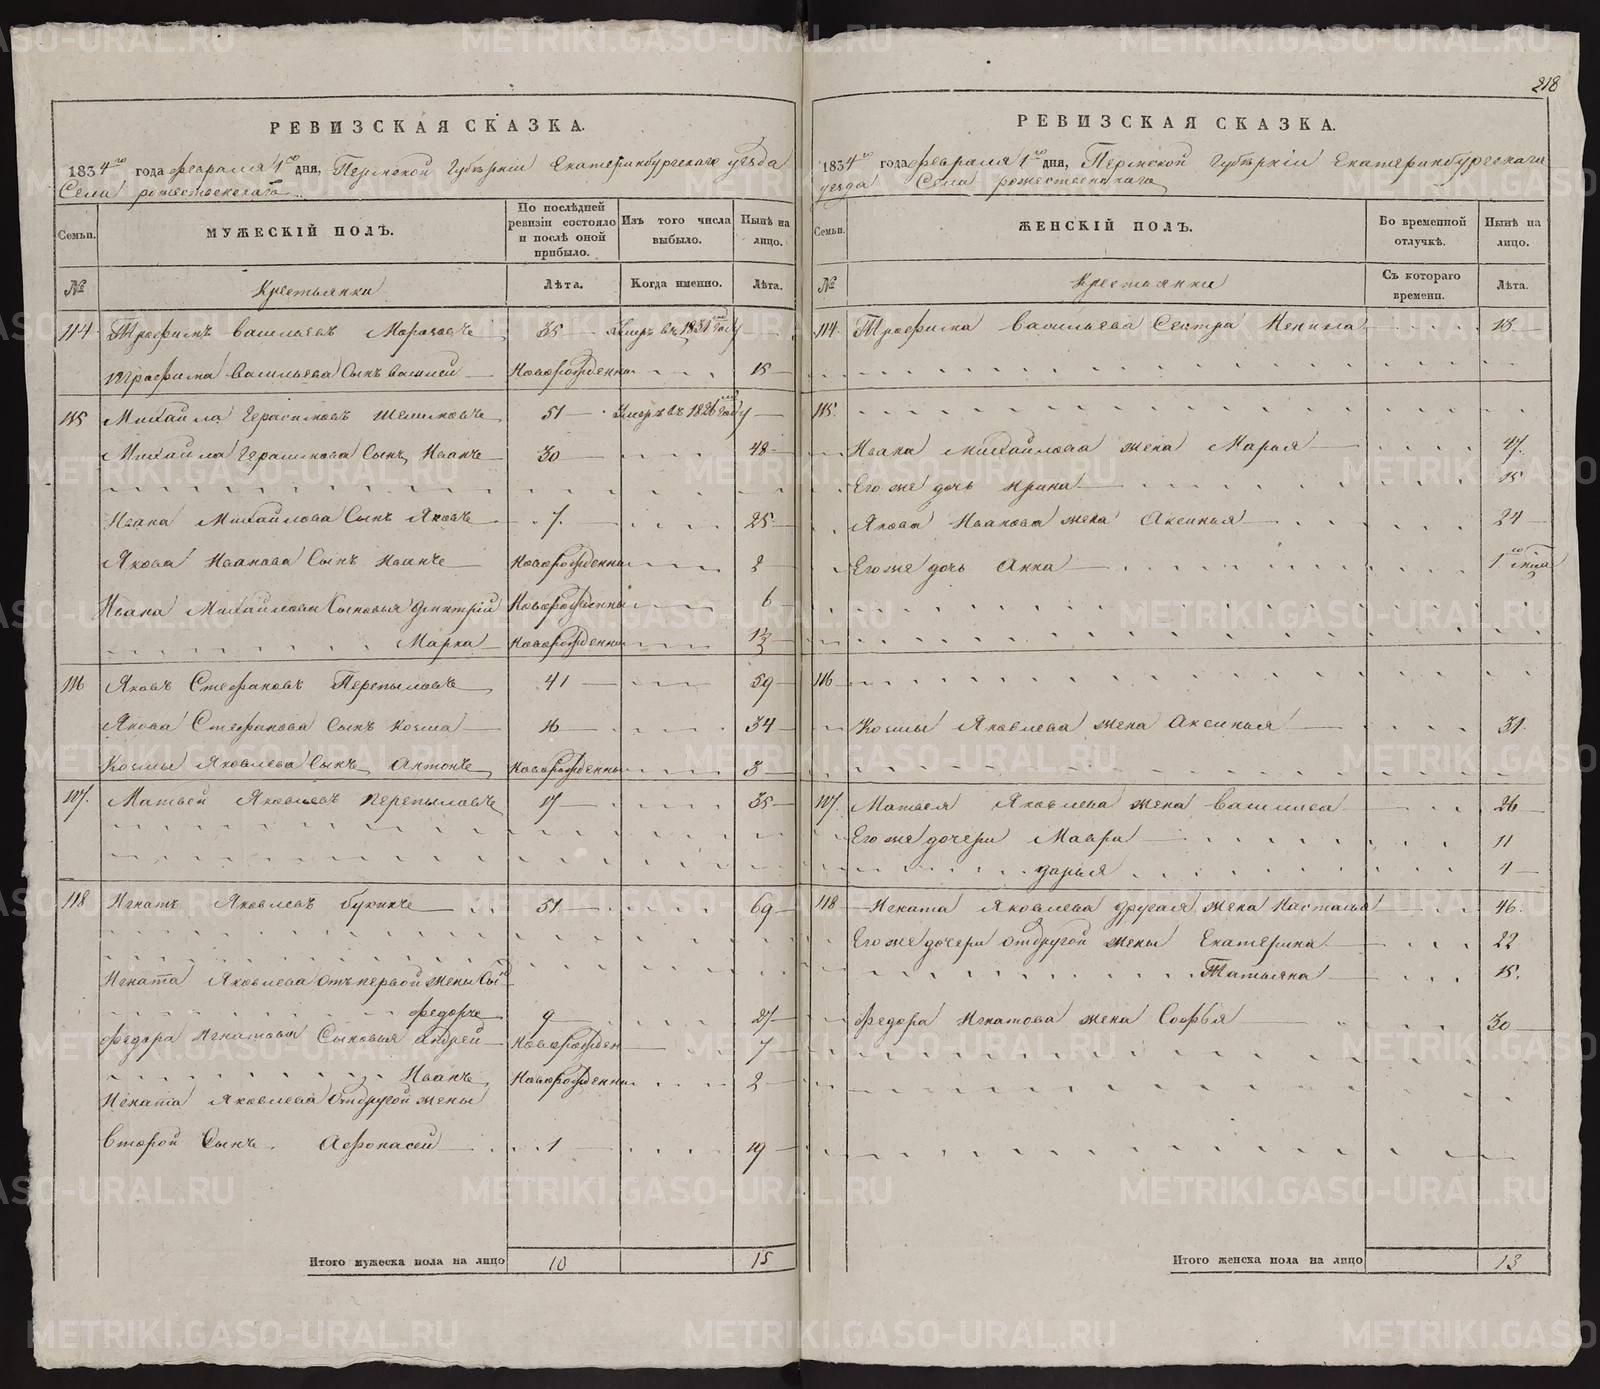 218
РЕВИЗСКАЯ СКАЗКА.
1834го года февраля 1го дня, Пермской Губерніи Екатеринбургскаго уезда
Села рожественскаго
Семьи.
МУЖЕСКІЙ ПОЛЪ.
По послѣдней ревизіи состояло и послѣ оной прибыло.
Изъ того числа выбыло.
Нынѣ на лицо.
№
Крестьянки
Лѣта.
Когда именно.
Лѣта.
114 Трофимъ васильевъ 35 Умеръ въ 1831 году
Трофима васильева Сынъ васисей Новорожденна 15
115 Михайла Герасимовъ 51 Умеръ въ 1826 году
Михайла Герасимова Сынъ Иванъ 30 48
Ивана Михайлова Сынъ Яковъ 7 25
Якова Иванова Сынъ Иванъ Новорожденны 2
Ивана Михайлова Сыновья дмитрій Новорожденны 6
Марка Новорожденны 1½
116 Яковъ Стефановъ Перепыловъ 41 59
Якова Стефанова Сынъ козма 16 34
Козмы Яковлева Сынъ Антонъ Новорожденны 3
107. Матвей Яковлевъ перепыловъ 17 35
118 Игнатъ Яковлевъ букинъ 51 69
Игната Яковлева отъ первой жены Сы
федоръ 9 27
федора Игнатова Сыновья Андрей Новорожден 7
Иванъ Новорожденны 2
Игната Яковлева отдругой жены
второй Сынъ Афонасей 1 19
Итого мужеска пола на лицо 10 15
РЕВИЗСКАЯ СКАЗКА.
1834го года февраля 1го дня, Пермской Губерніи Екатеринбургскаго
уезда Села рожественскаго
Семьи.
ЖЕНСКІЙ ПОЛЪ.
Во временной отлучкѣ.
Нынѣ на лицо.
№
Крестьянки
Съ котораго времени.
Лѣта.
114 Трофима васильева Сестра Ненила 13
115.
Ивана михайлова жена Марья 47.
Его же дочь ирина 15
Якова Иванова жена Аксинья 24
Его же дочь Анна 1
116
Козмы Яковлева жена Аксинья 31.
107. Матвея Яковлева жена василиса 26
Его же дочери Мавра 11
дарья 4
118 Игната Яковлева другая жена Настасья 46.
Его же дочери отдругой жены Екатерина 22
Татьяна 15.
федора Игнатова жена Софья 30
Итого женска пола на лицо 13
METRIKI.GASO-URAL.RU